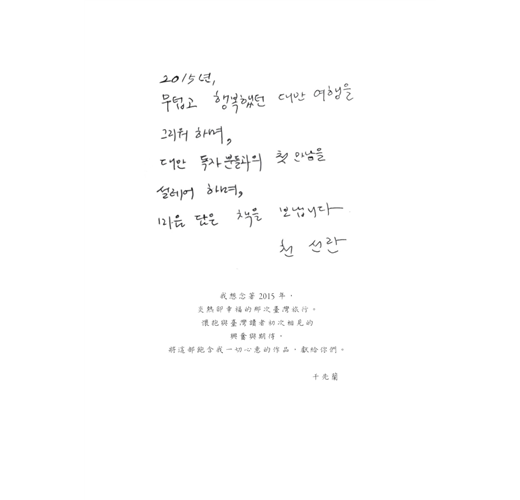 2015년,
무덥고 행복했던 대만 여행을
그리워 하며,
대만 독자분들과의 첫 만남을
설레어 하며,
마음 담은 책을 보냅니다
천 선란
我想念著 2015 年，
炎熱卻幸福的那次臺灣旅行。
懷抱與臺灣讀者初次相見的
興奮與期待，
將這部飽含我一切心意的作品，獻給你們。
千先蘭